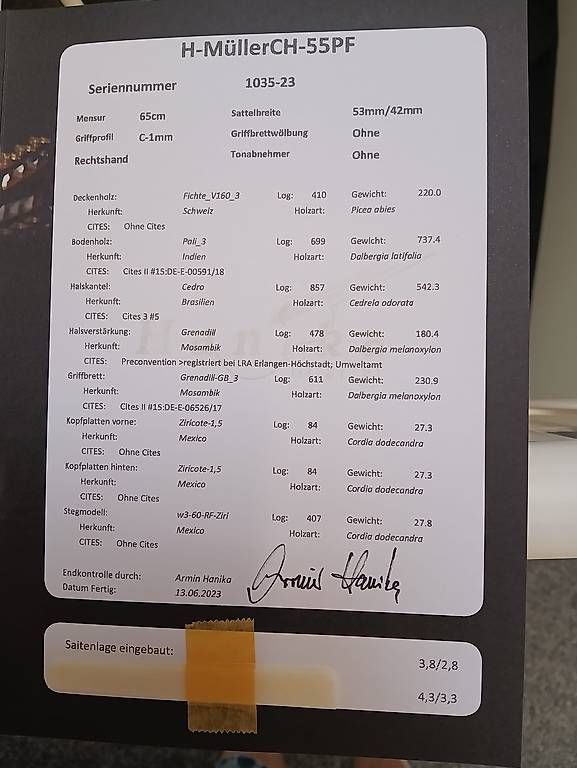 H-MüllerCH-55PF
Seriennummer 1035-23
Mensur 65cm Sattelbreite 53mm/42mm
Griffprofil C-1mm Griffbrettwölbung Ohne
Rechtshand Tonabnehmer Ohne
Deckenholz: Fichte_V160_3 Log: 410 Gewicht: 220.0
Herkunft: Schweiz Holzart: Picea abies
CITES: Ohne Cites
Bodenholz: Pali_3 Log: 699 Gewicht: 737.4
Herkunft: Indien Holzart: Dalbergia latifolia
CITES: Cites II #15:DE-E-00591/18
Halskantel: Cedro Log: 857 Gewicht: 542.3
Herkunft: Brasilien Holzart: Cedrela odorata
CITES: Cites 3 #5
Halsverstärkung: Grenadill Log: 478 Gewicht: 180.4
Herkunft: Mosambik Holzart: Dalbergia melanoxylon
CITES: Preconvention >registriert bei LRA Erlangen-Höchstadt; Umweltamt
Griffbrett: Grenadill-GB_3 Log: 611 Gewicht: 230.9
Herkunft: Mosambik Holzart: Dalbergia melanoxylon
CITES: Cites II #15:DE-E-06526/17
Kopfplatten vorne: Ziricote-1,5 Log: 84 Gewicht: 27.3
Herkunft: Mexico Holzart: Cordia dodecandra
CITES: Ohne Cites
Kopfplatten hinten: Ziricote-1,5 Log: 84 Gewicht: 27.3
Herkunft: Mexico Holzart: Cordia dodecandra
CITES: Ohne Cites
Stegmodell: w3-60-RF-Ziri Log: 407 Gewicht: 27.8
Herkunft: Mexico Holzart: Cordia dodecandra
CITES: Ohne Cites
Endkontrolle durch: Armin Hanika Armin Hanika
Datum Fertig: 13.06.2023
Saitenlage eingebaut: 3,8/2,8
4,3/3,3